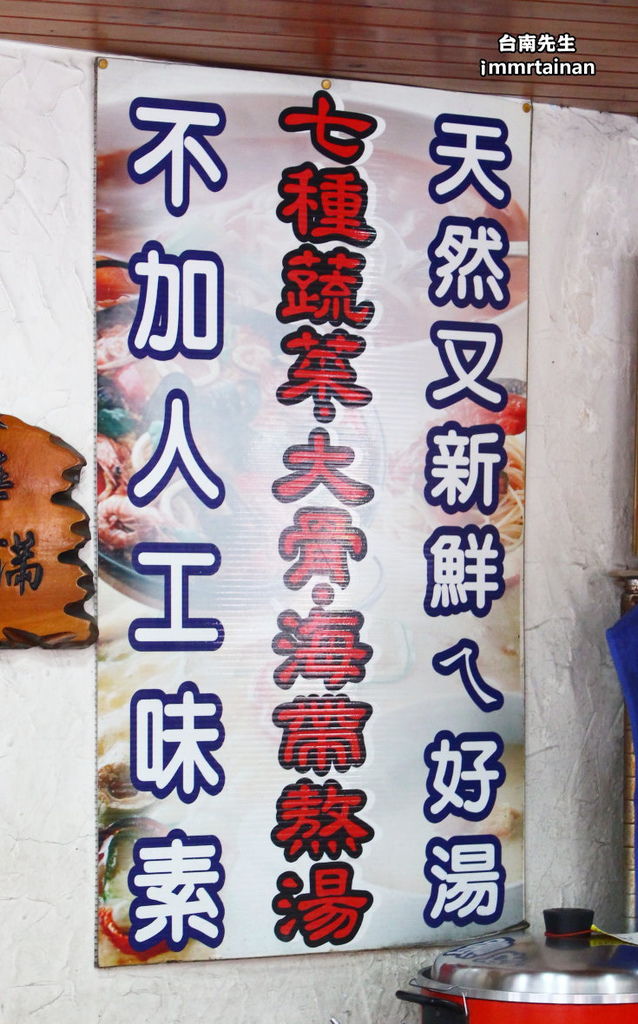 台南先生
jmmrtainan
天然又新鮮ㄟ好湯
七種蔬菜·大骨·海帶熬湯
不加人工味素
滿